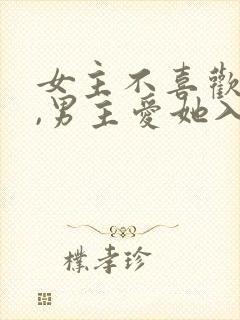 女主不喜歡
,男主愛她入
樸孝珍